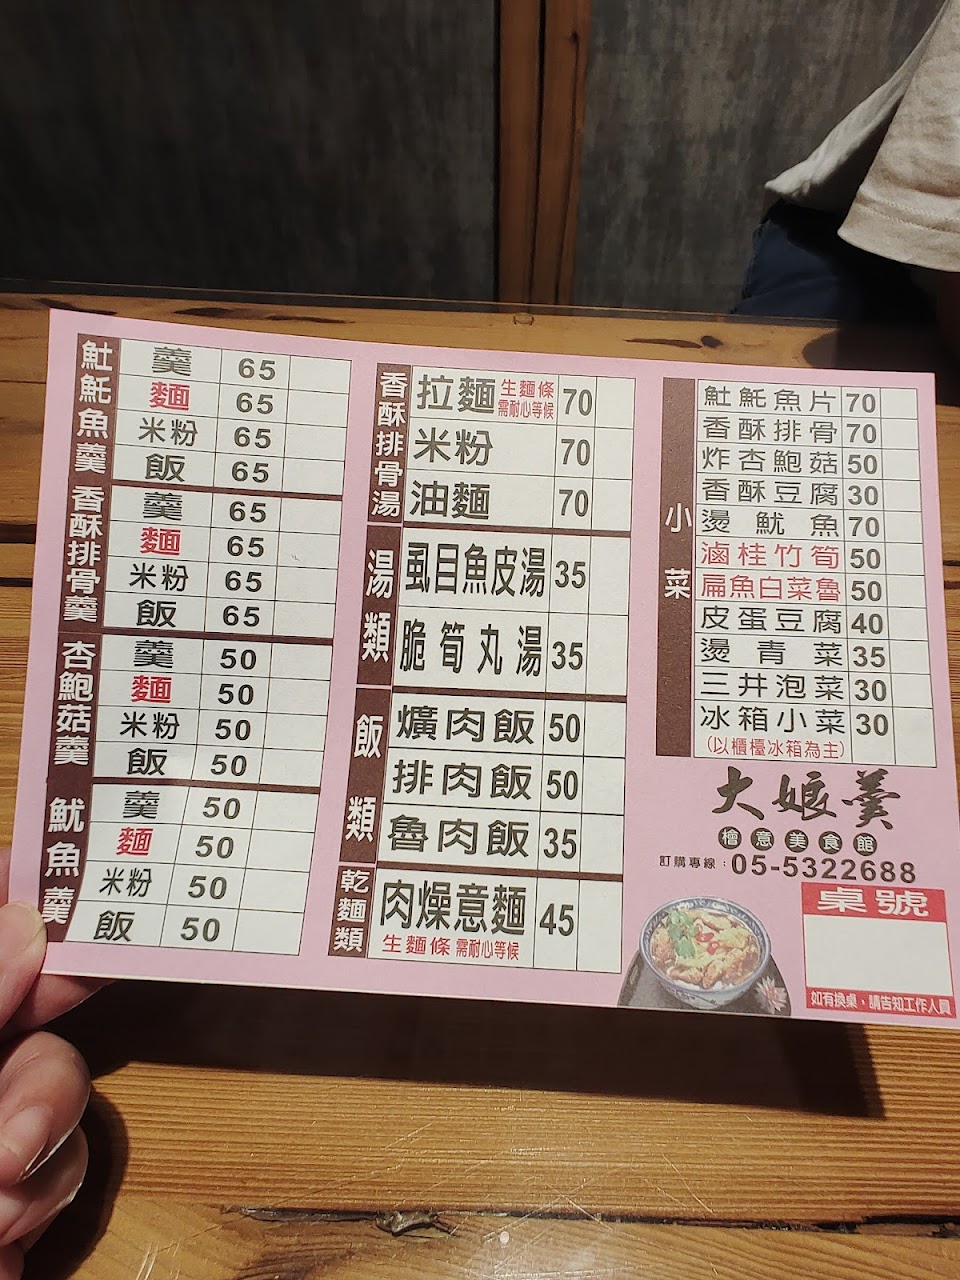 魠魠魚羹
羹 65
麵 65
米粉 65
飯 65
香酥排骨羹
羹 65
麵 65
米粉 65
飯 65
杏鮑菇羹
羹 50
麵 50
米粉 50
飯 50
魷魚羹
羹 50
麵 50
米粉 50
飯 50
香酥排骨湯
拉麵 生麵條 需耐心等候 70
米粉 70
油麵 70
湯類
虱目魚皮湯 35
脆筍丸湯 35
飯類
爌肉飯 50
排肉飯 50
魯肉飯 35
乾麵類
肉燥意麵 45
生麵條 需耐心等候
小菜
魠魠魚片 70
香酥排骨 70
炸杏鮑菇 50
香酥豆腐 30
燙魷魚 70
滷桂竹筍 50
扁魚白菜魯 50
皮蛋豆腐 40
燙青菜 35
三井泡菜 30
冰箱小菜 30
(以櫃檯冰箱為主)
大娘羹
檜意美食館
訂購專線：05-5322688
桌號
如有換桌，請告知工作人員